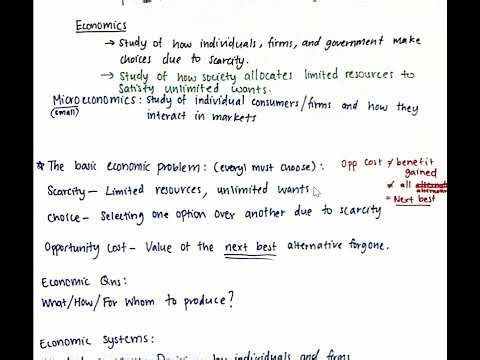 Economics
→ Study of how individuals, firms, and government make
choices due to scarcity.
→ Study of how society allocates limited resources to
satisfy unlimited wants.
Microeconomics: study of individual consumers/firms and how they
(small)
interact in markets
* The basic economic problem: (every1 must choose):
Scarcity – Limited resources, unlimited wants
Choice – Selecting one option over another due to scarcity
Opportunity cost – Value of the next best alternative forgone.
Opp cost ≠ benefit
gained
≠ all
= Next best
Economic Qns:
What/How/For Whom to produce?
Economic systems:
by individuals and firms